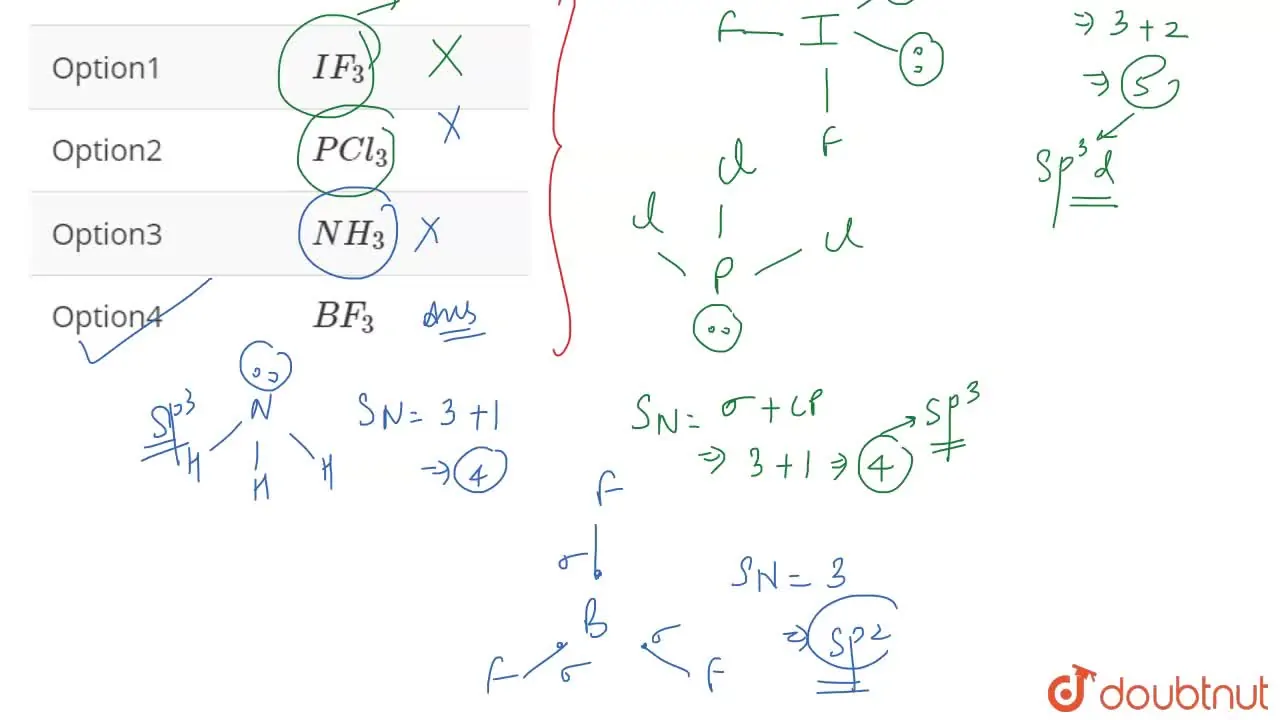 Option1 IF₃ X
Option2 PCl₃ X
Option3 NH₃ X
Option4 BF₃ Ans
F I F
⇒ 3 + 2
⇒ 5
Sp³d
Cl
Cl P Cl
Sp³
N
H H H
SN = 3 + 1
⇒ 4
SN = σ + LP
⇒ 3 + 1 ⇒ 4 → Sp³
F
σ
B
F σ σ F
SN = 3
⇒ Sp2
doubtnut